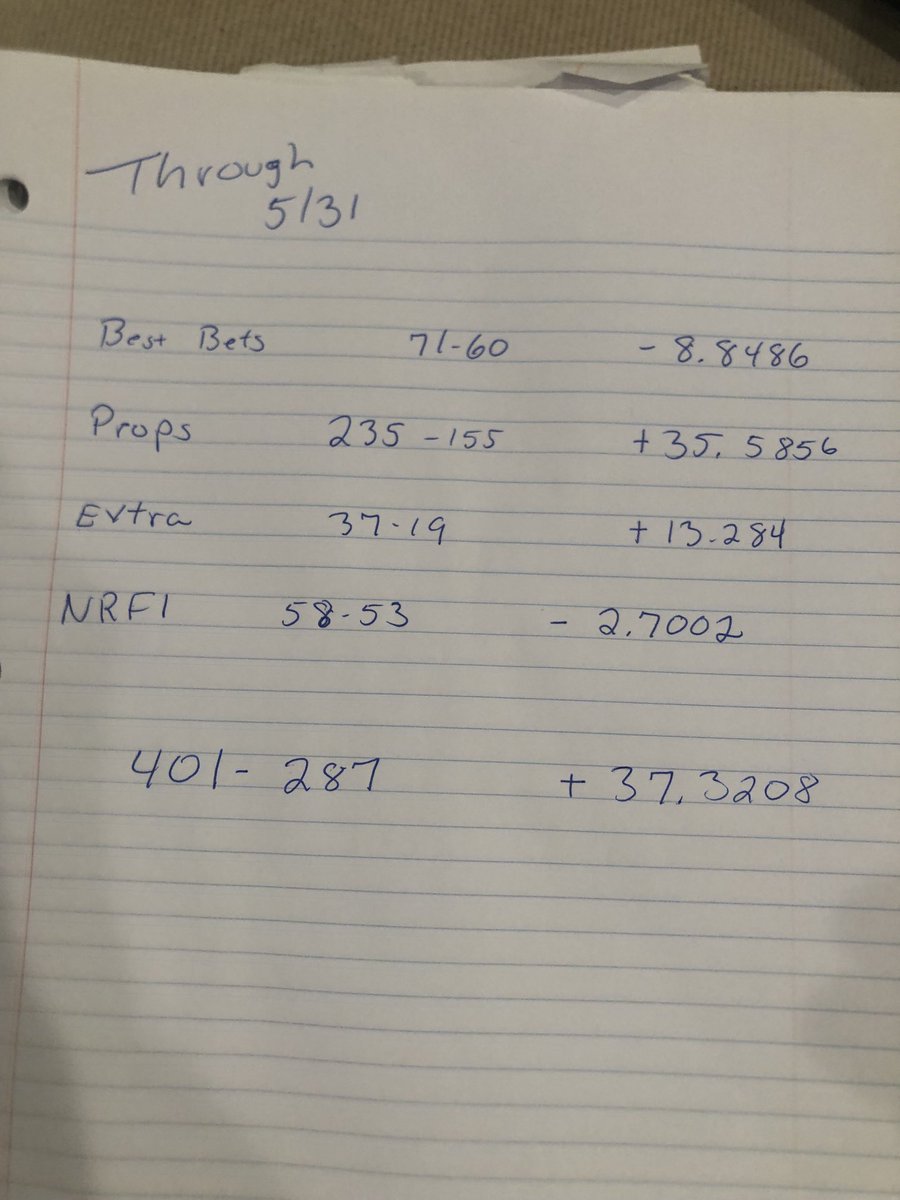 Through
5/31
Best Bets 71-60 - 8.8486
Props 235-155 +35.5856
Extra 37-19 +13.284
NRFI 58-53 - 2.7002
401-287 +37.3208